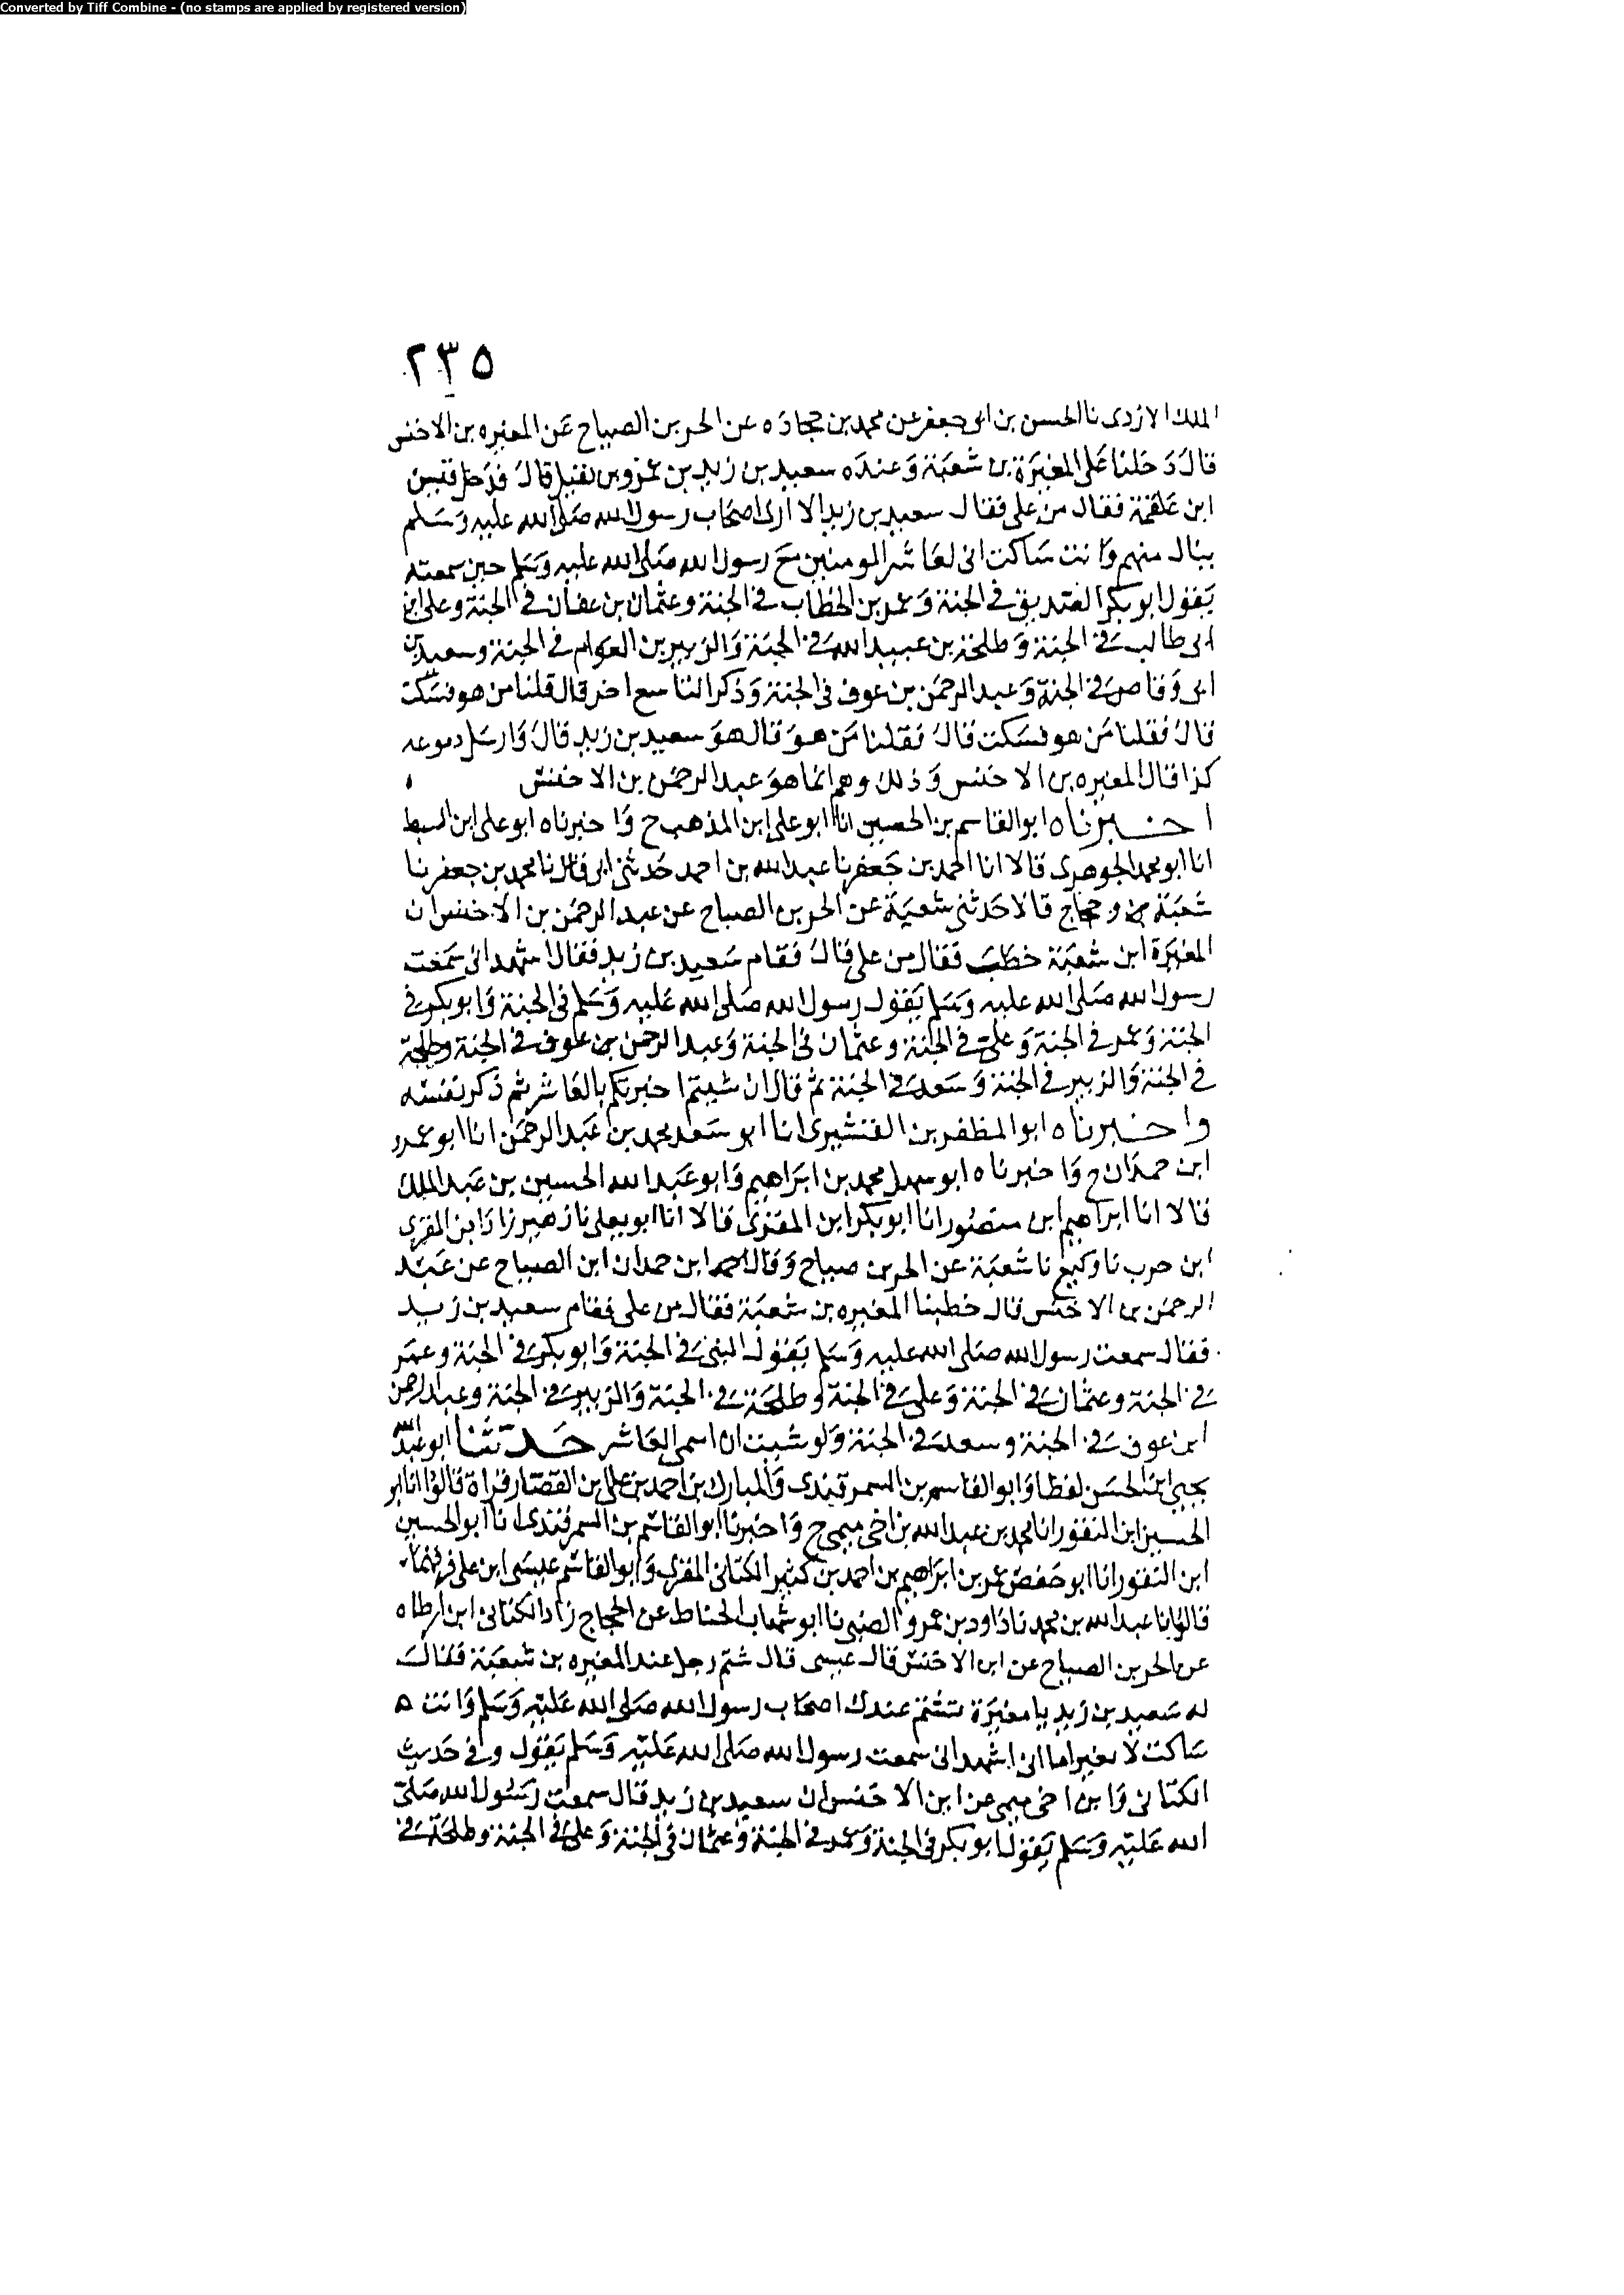 Converted by Tiff Combine - (no stamps are applied by registered version)
٢٣٥
الملك الازدى نا الحسن بن ابى جعفر عن محمد بن جحاده عن الحر بن الصياح عن المغيره بن الاخنس
قال دخلنا على المغيرة بن شعبة وعنده سعيد بن زيد بن عمرو بن نفيل قال فدخل قيس
ابن علقمة فقال من على فقال سعيد بن زيد الا ارى اصحاب رسول الله صلى الله عليه وسلم
ينال منهم وانت ساكت انى لعاشر المومنين مع رسول الله صلى الله عليه وسلم حين سمعته
يقول ابو بكر الصديق في الجنة وعمر بن الخطاب في الجنة وعثمان بن عفان في الجنة وعلى ابن
ابى طالب في الجنة وطلحة بن عبيد الله في الجنة والزبير بن العوام في الجنة وسعد بن
ابى وقاص في الجنة وعبد الرحمن بن عوف في الجنة وذكر لنا تاسع اخر قال قلنا من هو فسكت
قال فقلنا من هو فسكت قال فقلنا من هو قال هو سعيد بن زيد قال وارسل دموعه
كذا قال المغيره بن الاخنس وذلك وهم انما هو عبد الرحمن بن الاخنس ه
اخبرناه ابو القاسم بن الحصين انا ابو على ابن المذهب ح واخبرناه ابو على ابن السبط
انا ابو محمد الجوهرى قالا انا احمد بن جعفر نا عبد الله بن احمد حدثنى ابى قال نا محمد بن جعفر نا
شعبة وحجاج قالا حدثنى شعبة عن الحر بن الصياح عن عبد الرحمن بن الاخنس ان
المغيرة ابن شعبة خطب فقال من على قال فقام سعيد بن زيد فقال اشهد انى سمعت
رسول الله صلى الله عليه وسلم يقول رسول الله صلى الله عليه وسلم في الجنة وابو بكر في
الجنة وعمر في الجنة وعلى في الجنة وعثمان في الجنة وعبد الرحمن بن عوف في الجنة وطلحة
في الجنة والزبير في الجنة وسعد في الجنة ثم قال ان شيتم اخبرتكم بالعاشر ثم ذكر نفسه
واخبرناه ابو المظفر بن القشيرى انا ابو سعد محمد بن عبد الرحمن انا ابو عمرو
ابن حمدان ح واخبرناه ابو سهل محمد بن ابراهيم وابو عبد الله الحسين بن عبد الملك
قالا انا ابراهيم ابن منصور انا ابو بكر ابن المقرى قالا انا ابو يعلى نا زهير زاد ابن المقرى
ابن حرب نا وكيع نا شعبة عن الحر بن صياح وقال ابن حمدان ابن الصياح عن عبد
الرحمن بن الاخنس قال خطبنا المغيره بن شعبة فقال من على فقام سعيد بن زيد
فقال سمعت رسول الله صلى الله عليه وسلم يقول النبى في الجنة وابو بكر في الجنة وعمر
في الجنة وعثمان في الجنة وعلى في الجنة وطلحة في الجنة والزبير في الجنة وعبد الرحمن
ابن عوف في الجنة وسعد في الجنة ولو شيت ان اسمى العاشر حدثنا ابو عبد الله
يحيى ابن الحسن لفظا وابو القاسم بن السمرقندى والمبارك بن احمد بن على ابن القصار قراة قالوا انا ابو
الحسين ابن النقور انا محمد بن عبد الله بن اخى ميمى ح واخبرنا ابو القاسم بن السمرقندى انا ابو الحسين
ابن النقور انا ابو حفص عمر بن ابراهيم بن احمد بن كثير الكتانى المقرى وابو القاسم عيسى ابن على
قالوا نا عبد الله بن محمد نا داود بن عمرو الضبى نا ابو شهاب الحناط عن الحجاج زاد الكتانى ابن ارطاه
عن الحر بن الصياح عن ابن الاخنس قال عيسى قال شتم رجل عند المغيره بن شعبة فقال
له سعيد بن زيد يا مغيرة تشتم عندك اصحاب رسول الله صلى الله عليه وسلم وانت ه
ساكت لا تغير اما انى اشهد انى سمعت رسول الله صلى الله عليه وسلم يقول وفى حديث
الكتانى وابن اخى ميمى عن ابن الاخنس ان سعيد بن زيد قال سمعت رسول الله صلى
الله عليه وسلم يقول ابو بكر في الجنة وعمر في الجنة وعثمان في الجنة وعلى في الجنة وطلحة في